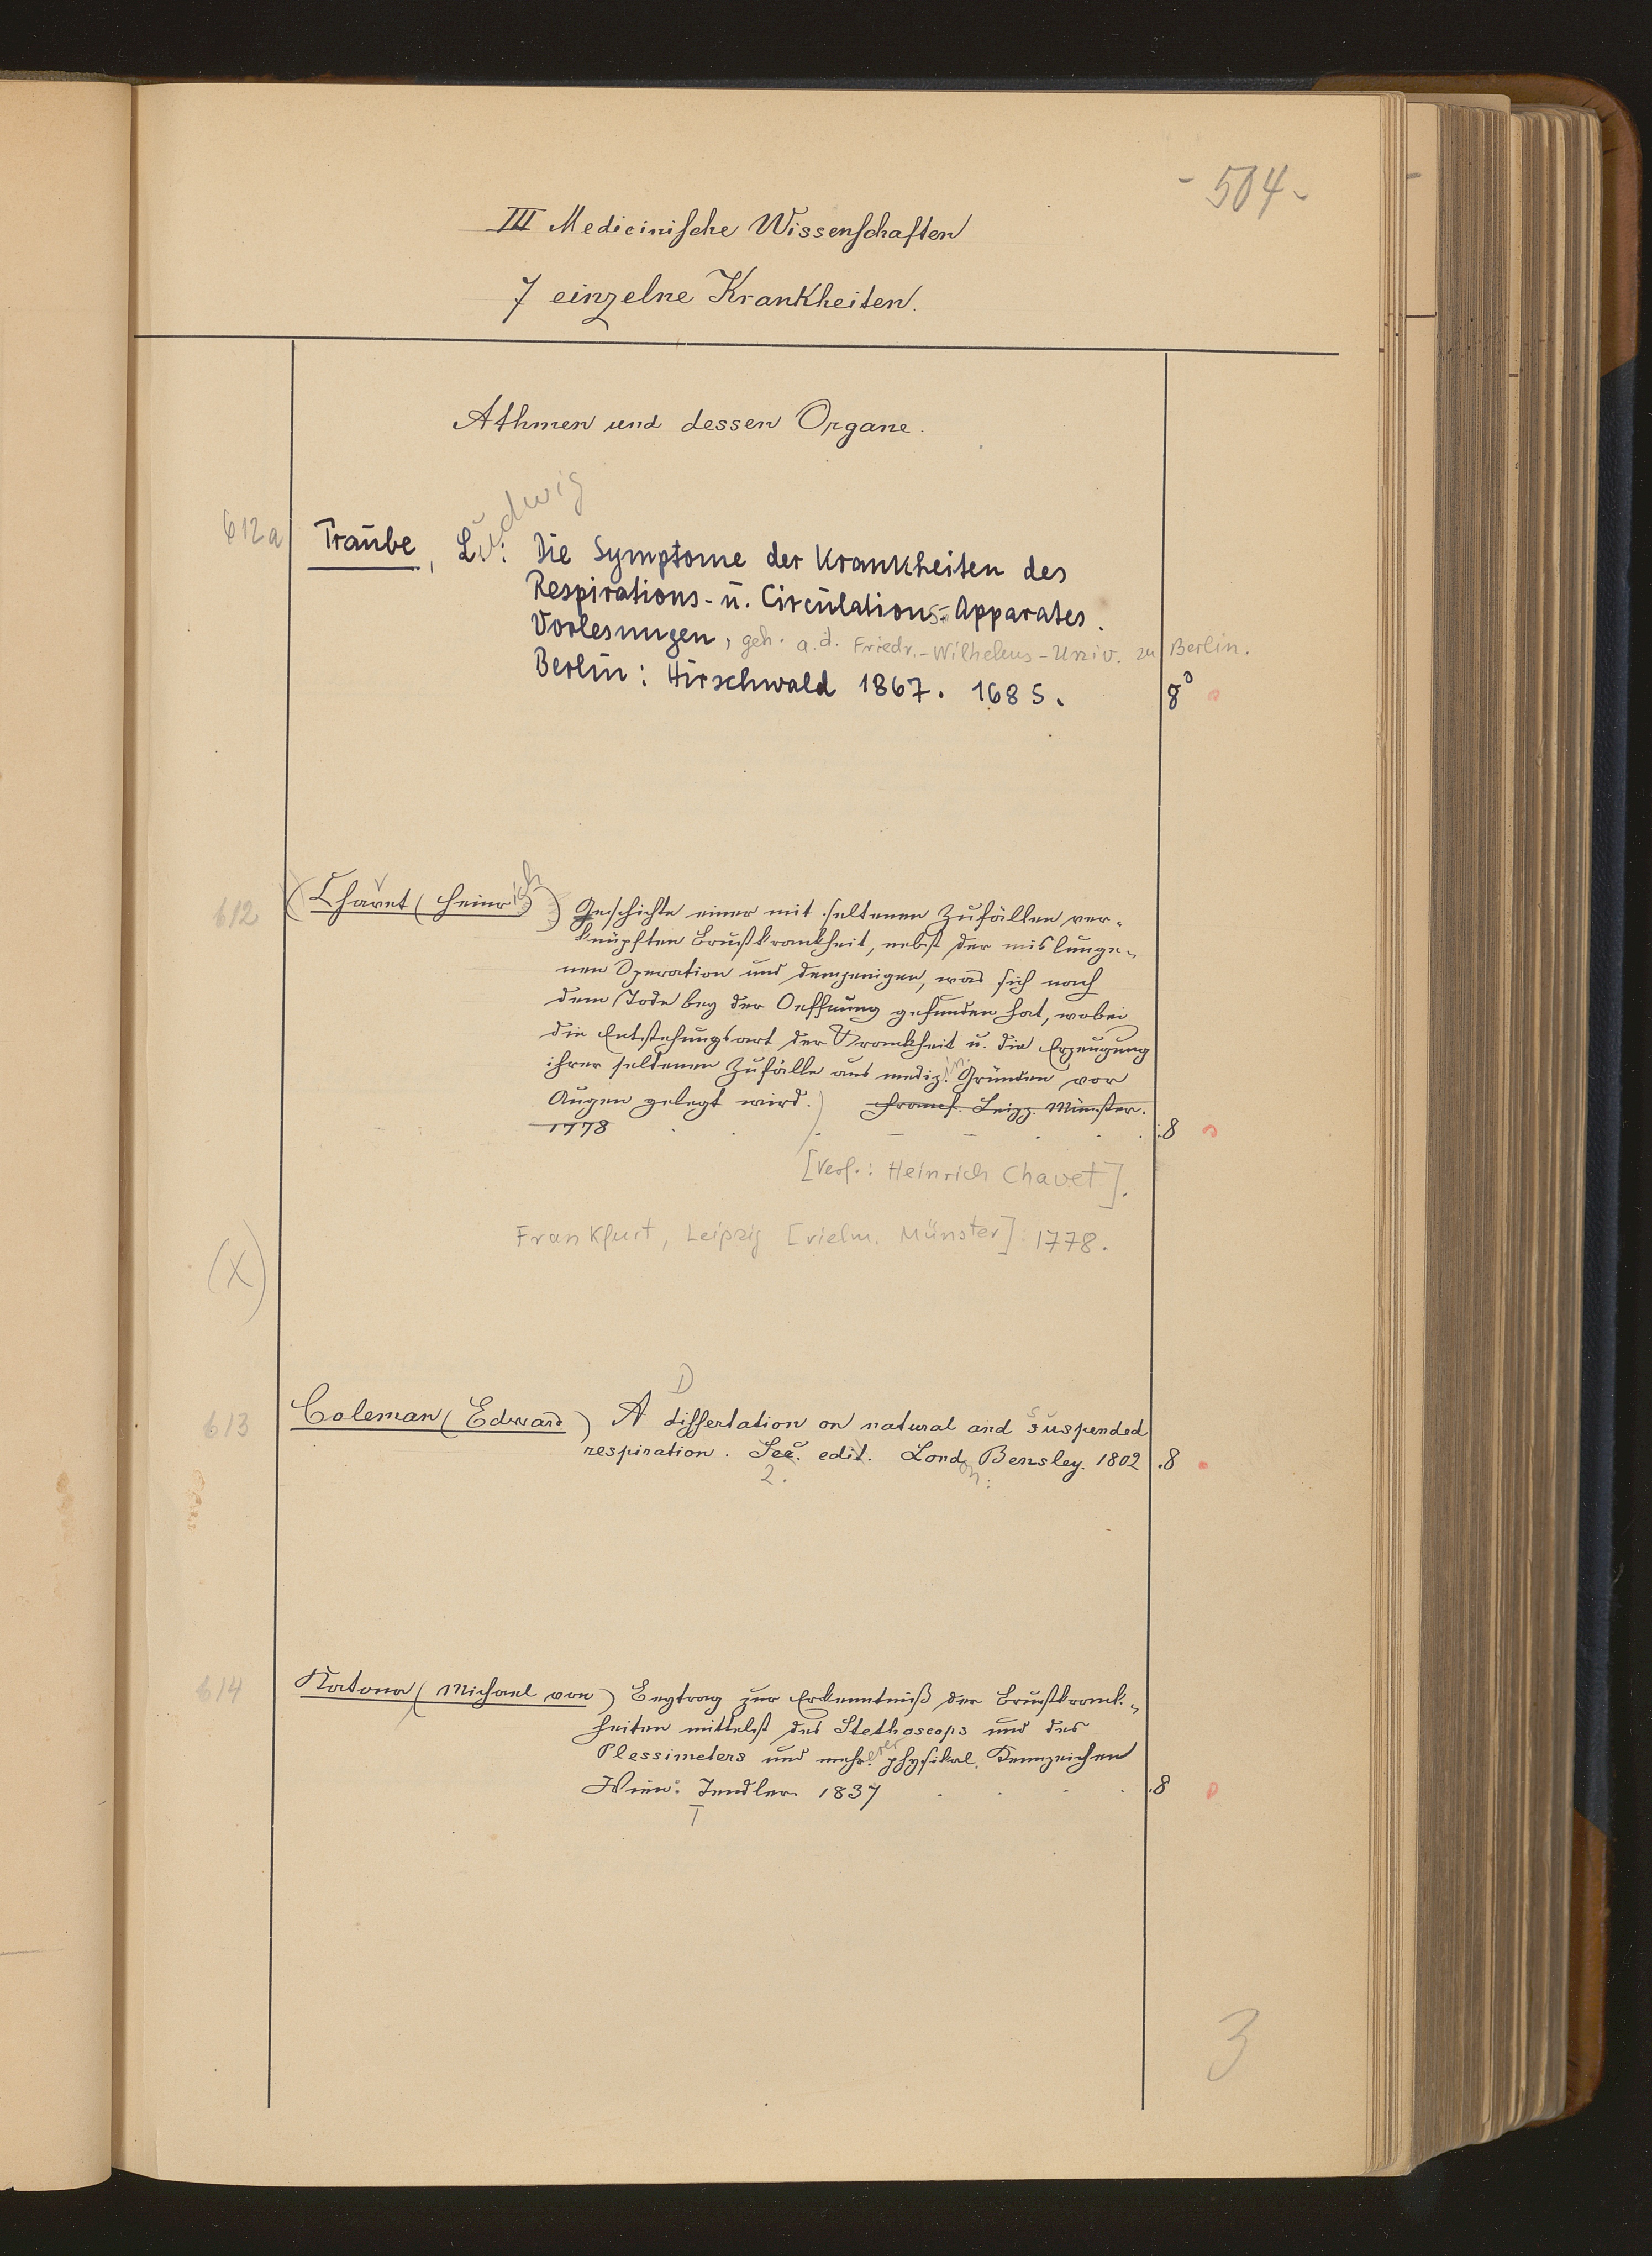 - 504 -
III Medicinische Wissenschaften
7 einzelne Krankheiten.
Athmen und dessen Organe.
612a Traube, Ludwig: Die Symptome der Krankheiten des
Respirations- u. Circulations-Apparates.
Vorlesungen, geh. a. d. Friedr.-Wilhelms-Univ. zu Berlin.
Berlin: Hirschwald 1867. 168 S. 8°
612 (Chavet (Heinrich) Geschichte einer mit seltenen Zufällen ver-
knüpften Brustkrankheit, nebst der mislunge-
nen Operation und demjenigen, was sich nach
dem Tode bey der Oeffnung gefunden hat, wobei
die Entstehungsart der Krankheit u. die Erzeugung
ihrer seltenen Zufälle aus medizin. Gründen vor
Augen gelegt wird.) Francf. Leipz. Münster.
1778 . . - - - . . . 8
[Verf.: Heinrich Chavet].
Frankfurt, Leipzig [vielm. Münster] 1778.
(X)
613 Coleman (Edward) A Dissertation on natural and suspended
respiration. Sec. edit. London Bensley. 1802 .8
2.
614 Katona (Michael von) Beytrag zur Erkenntniß der Brustkrank-
heiten mittelst des Stethoscops und des
Plessimeters und mehrerer physikal. Kennzeichen
Wien: Tendler 1837 . . - . .8
T
3